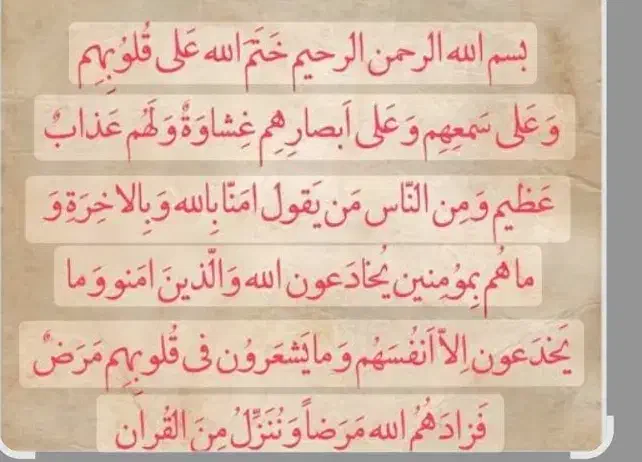 بسم الله الرحمن الرحيم خَتَمَ الله عَلى قُلُوبِهِم
وَعَلى سَمعِهِم وَعَلى اَبصارِهِم غِشاوَةٌ وَلَهُم عَذابٌ
عَظيم وَمِن النّاس مَن يَقول امَنّا بِالله وَبِالاخِرَةِ وَ
ماهُم بِموُمِنين يُخادَعون الله وَالَّذينَ امَنو وَما
يَخدَعون اِلاّ اَنفُسَهُم وَمايَشعَروُن فى قُلوبِهِم مَرَضٌ
فَزادَهُمُ الله مَرَضاً وَنُنَزِّلُ مِنَ القُران